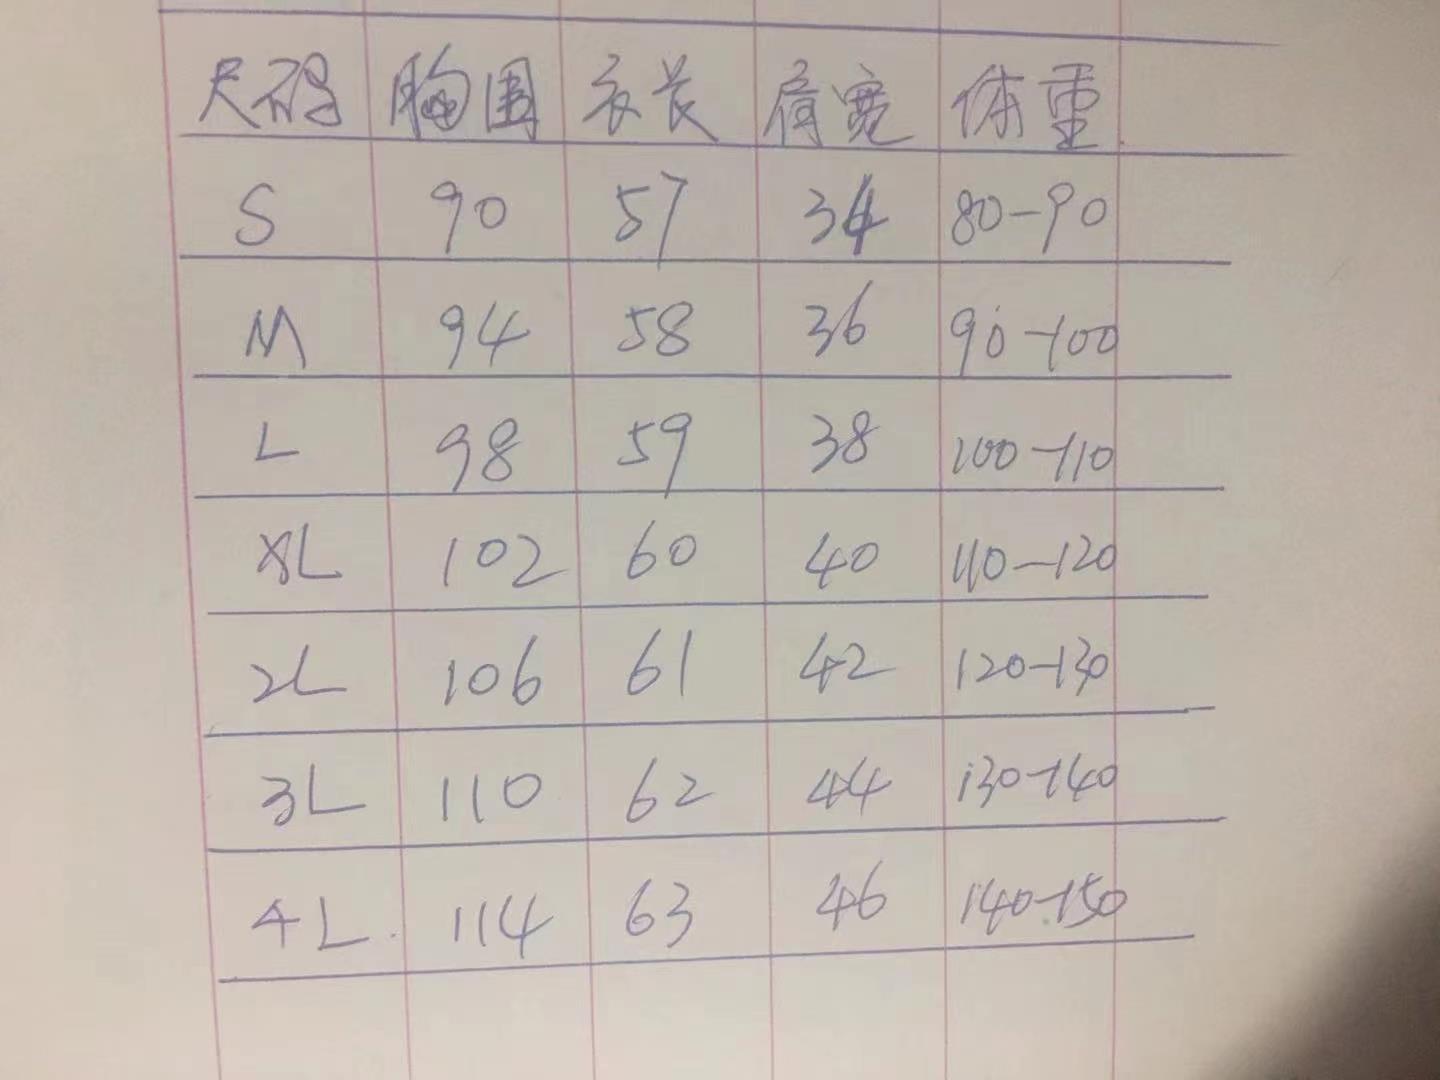 尺码 胸围 衣长 肩宽 体重
S 90 57 34 80-90
M 94 58 36 90-100
L 98 59 38 100-110
XL 102 60 40 110-120
2L 106 61 42 120-130
3L 110 62 44 130-140
4L 114 63 46 140-150